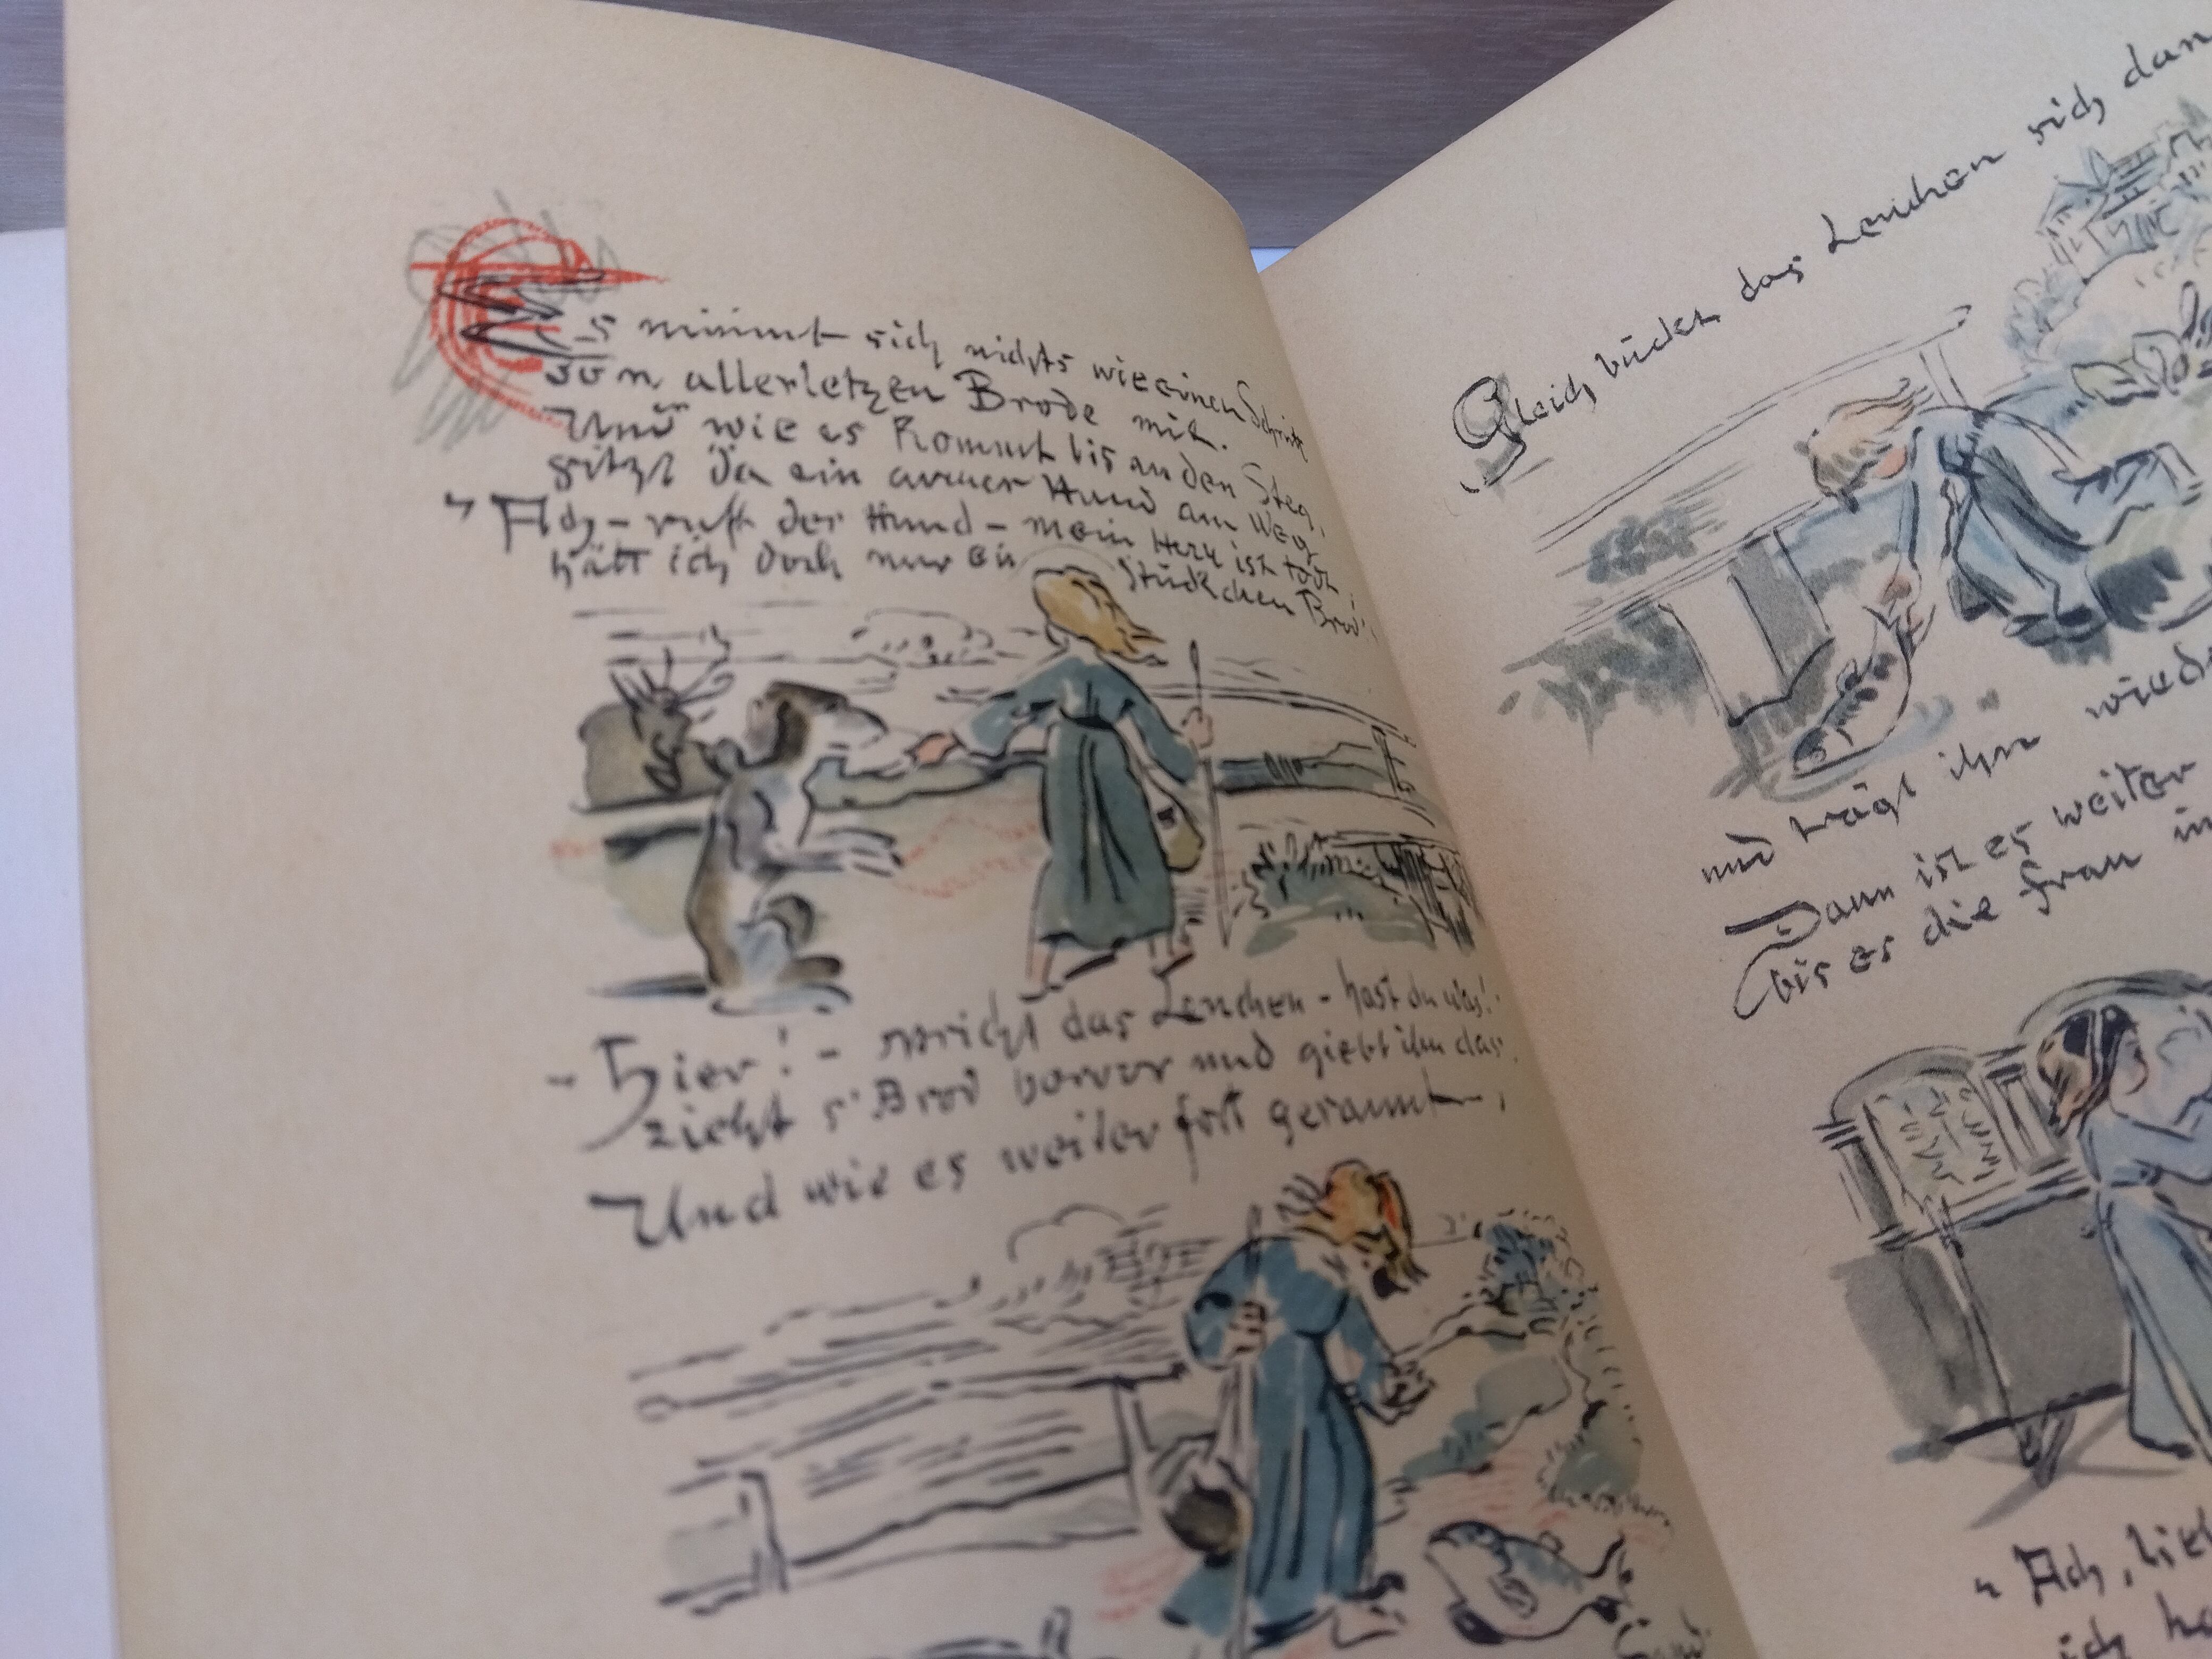 Es nimmt sich nichts wie einen Schnitt
vom allerletzen Brode mit.
Und wie es kommt bis an den Steg,
sitzt da ein armer Hund am Weg.
"Ach – ruft der Hund – mein Herr ist todt,
hätt ich doch nur ein Stückchen Brod!
"Hier! – spricht das Lenchen – hast du was!"
zieht s'Brod hervor und giebt ihm das.
Und wie es weiter fort gerannt,
Gleich bückt das Lenchen sich dan
und trägt ihn wied
Dann ist es weiter
bis es die Frau in
"Ach, lieb
ich ha